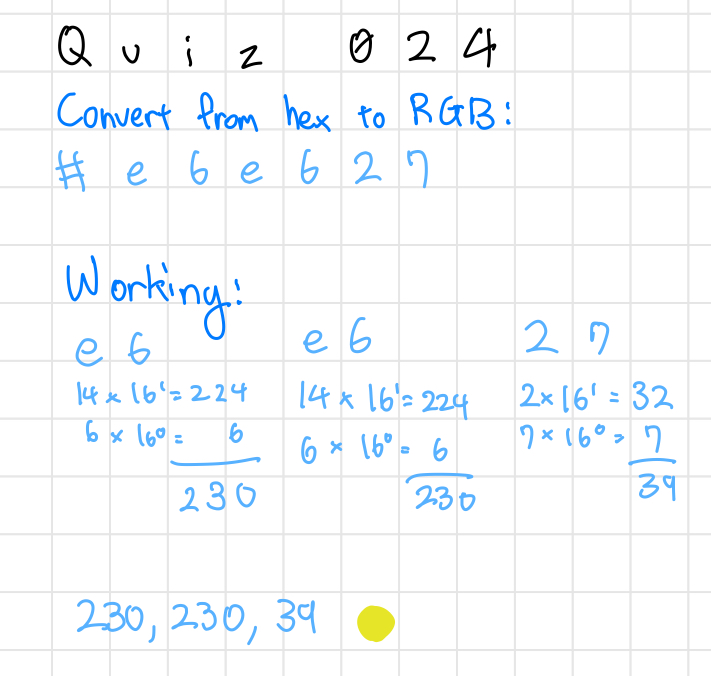 Quiz 024
Convert from hex to RGB:
# e 6 e 6 2 7
Working:
e 6
14 × 16¹ = 224
6 × 16⁰ = 6
230
e 6
14 × 16¹ = 224
6 × 16⁰ = 6
230
2 7
2 × 16¹ = 32
7 × 16⁰ = 7
39
230, 230, 39